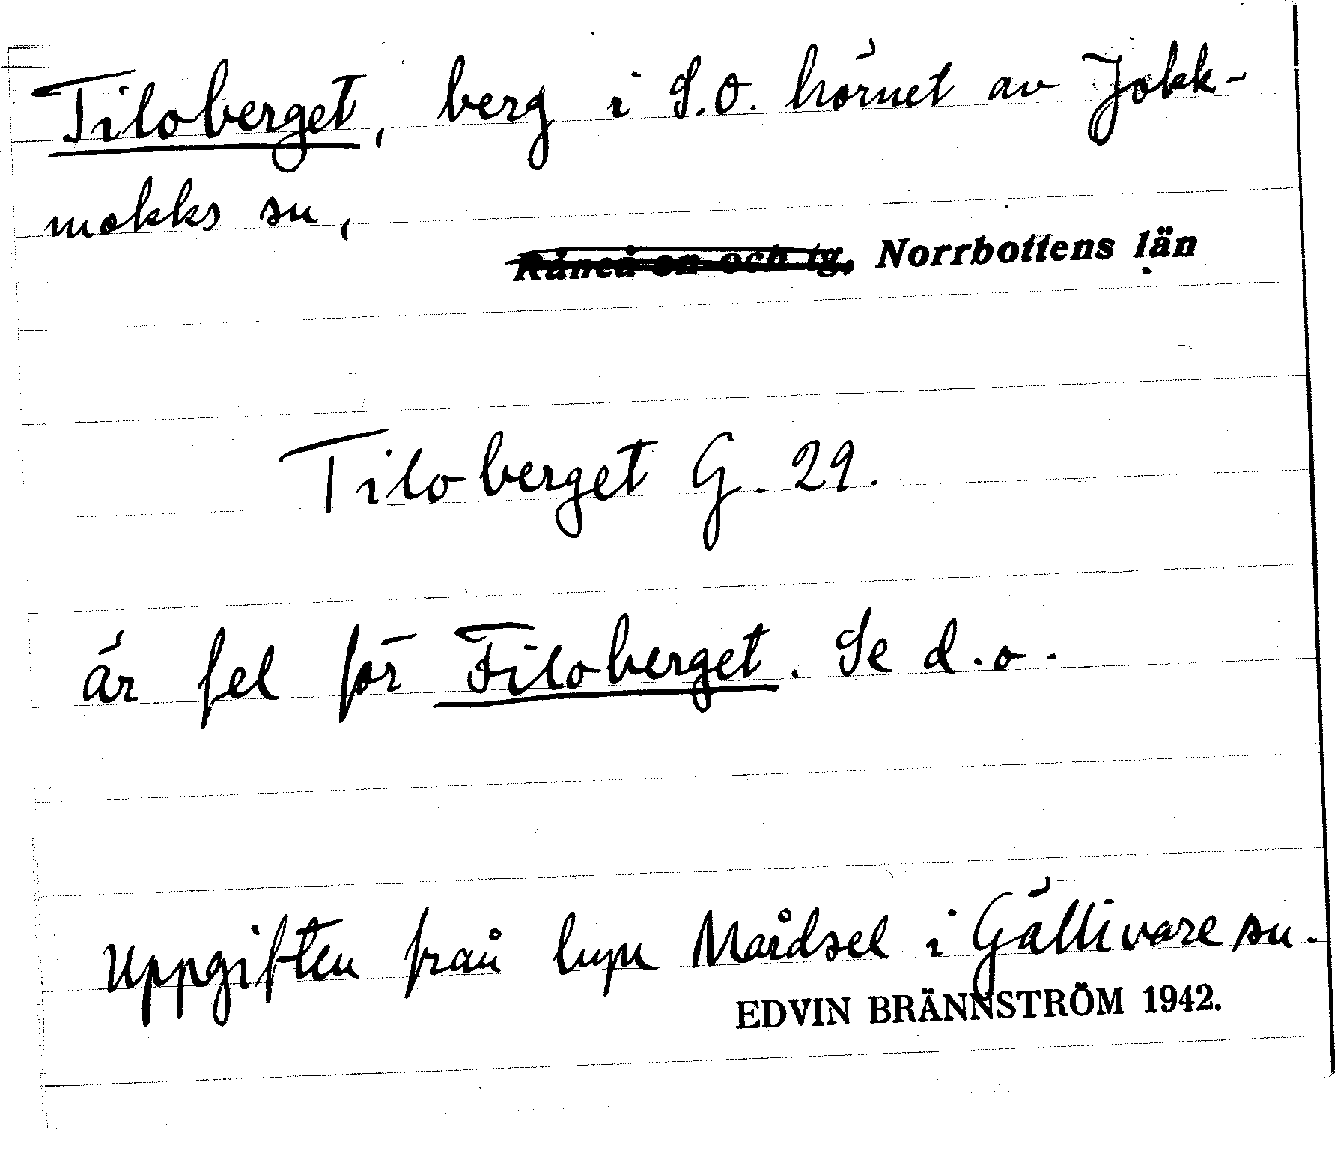 Tiloberget, berg i S.O. hörnet av Jokk-
mokks sn,
Råneå sn och tg, Norrbottens län
Tiloberget G. 29.
är fel för Filoberget. Se d.o.
Uppgiften från byn Mårdsel i Gällivare sn.
EDVIN BRÄNNSTRÖM 1942.